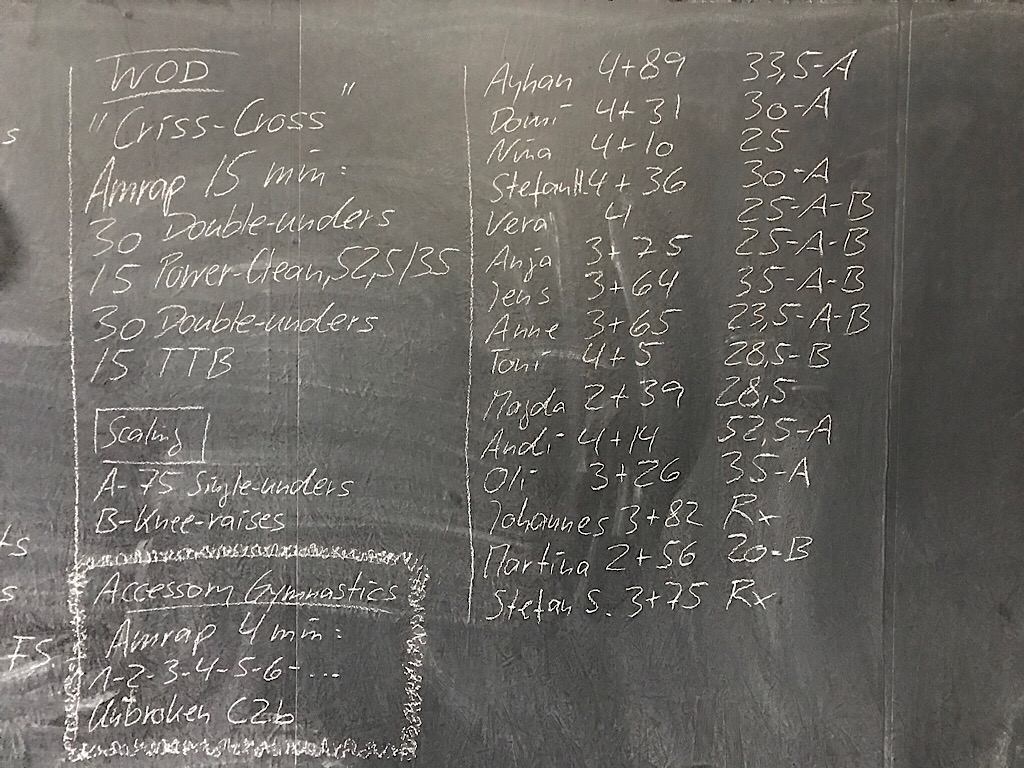 WOD
"Criss-Cross"
Amrap 15 min:
30 Double-unders
15 Power-Clean, 52,5/35
30 Double-unders
15 TTB
Scaling
A- 75 Single-unders
B-Knee-raises
Accessory Gymnastics
Amrap 4 min:
1-2-3-4-5-6-...
Unbroken C2b
Ayhan 4+89 33,5-A
Domi 4+31 30-A
Nina 4+10 25
Stefan H. 4+36 30-A
Vera 4 25-A-B
Anja 3+75 25-A-B
Jens 3+64 35-A-B
Anne 3+65 23,5-A-B
Toni 4+5 28,5-B
Magda 2+39 28,5
Andi 4+14 52,5-A
Oli 3+26 35-A
Johannes 3+82 Rx
Martina 2+56 20-B
Stefan S. 3+75 Rx